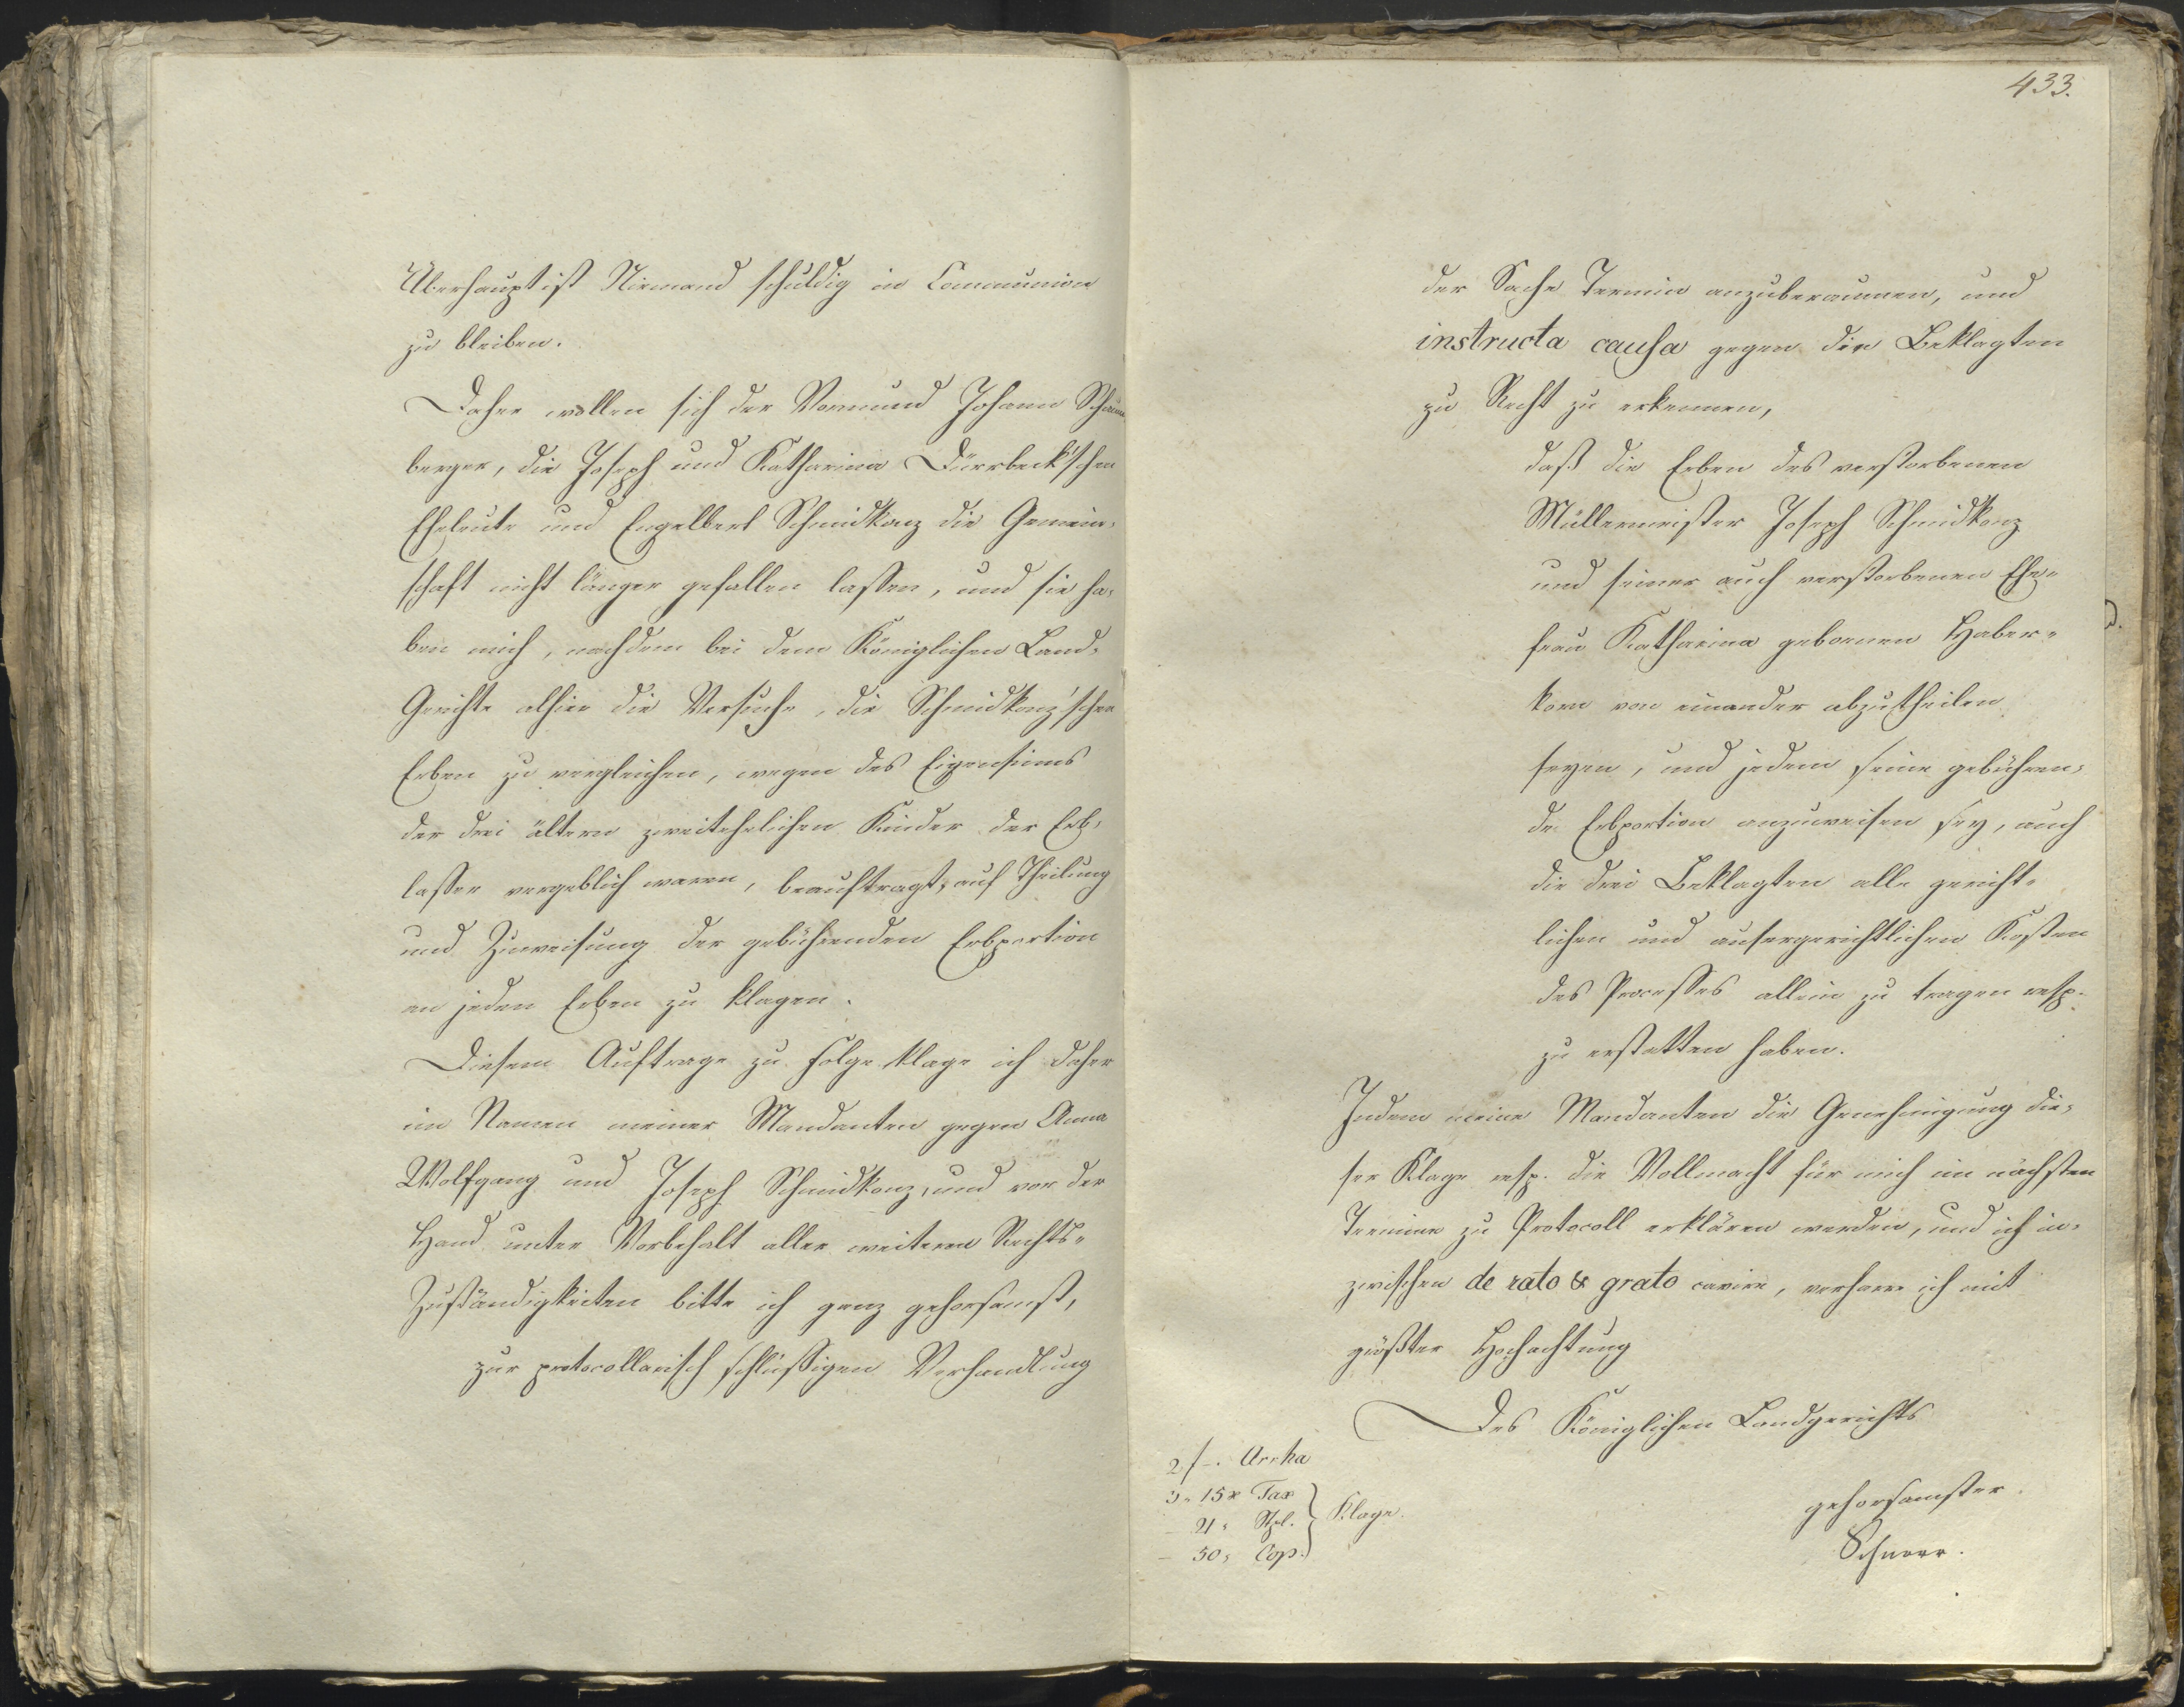 Überhaupt ist Niemand schuldig in Communion
zu bleiben.
Daher wollen sich der Vormund Johann
berger, die Joseph und Katharina Dürrbeck'schen
Eheleute und Engelbert Schmidkonz die Gemein-
schaft nicht länger gefallen lassen, und sie ha-
ben mich, nachdem bei dem Königlichen Land-
Gerichte alhier die Versuche, die Schmidkonz'schen
Erben zu vergleichen, wegen des Eigensinns
der drei ältern zweitehelichen Kinder der Erb-
lasser vergeblich waren, beauftragt, auf Theilung
und Zuweisung der gebührenden Erbportion
an jeden Erben zu klagen.
Diesem Auftrage zu Folge klage ich daher
im Namen meiner Mandanten gegen Anna
Wolfgang und Joseph Schmidkonz, und vor der
Hand unter Vorbehalt aller weiteren Rechts-
Zuständigkeiten bitte ich ganz gehorsamst,
zur protocollarisch schlüßigen Verhandlung
433.
der Sache Termin anzuberaumen, und
instructa causa gegen die Beklagten
zu Recht zu erkennen,
daß die Erben des verstorbenen
Müllermeister Joseph Schmidkonz
und seiner auch verstorbenen Ehe-
frau Katharina gebornen Haber-
korn von einander abzutheilen
seyen, und jedem seine gebühren-
de Erbportion anzuweisen sey, auch
die drei Beklagten alle gericht-
lichen und ausergerichtlichen Kosten
des Processes allein zu tragen resp.
zu erstatten haben.
Indem meine Mandanten die Genehmigung die-
ser Klage resp. die Vollmacht für mich im nächsten
Termine zu Protocoll erklären werden, und ich in-
zwischen de rato & grato cavire, verharre ich mit
größter Hochachtung
Des Königlichen Landgerichts
gehorsamster
Schnorr.
2 f -. Arrha
3 " 15 x Tax
- 21 " Stpl. } Klage.
- 50 " Cop.